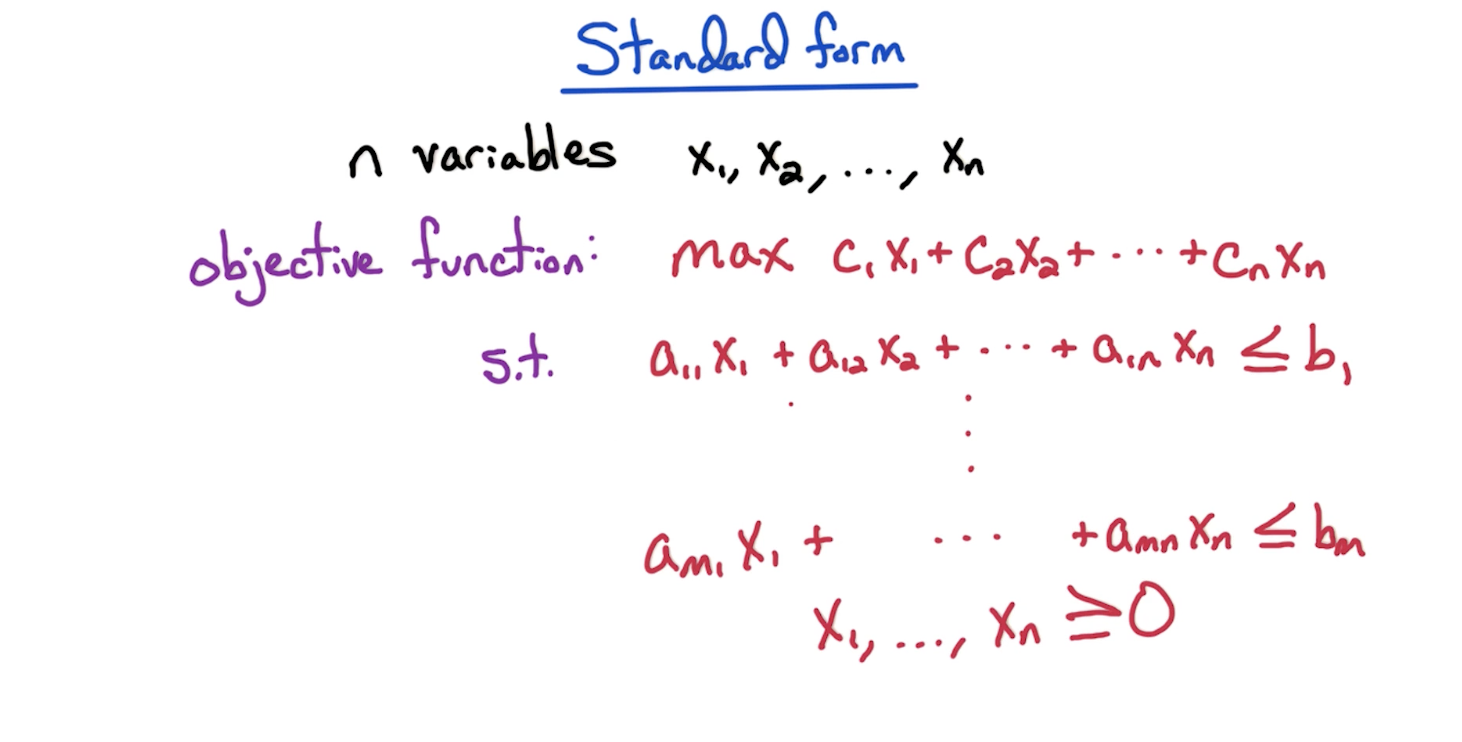 Standard form
n variables x₁, x₂, ..., xₙ
objective function: max c₁x₁ + c₂x₂ + ··· + cₙxₙ
s.t. a₁₁x₁ + a₁₂x₂ + ··· + a₁ₙxₙ ≤ b₁
⋮
aₘ₁x₁ + ··· + aₘₙxₙ ≤ bₘ
x₁, ..., xₙ ≥ 0